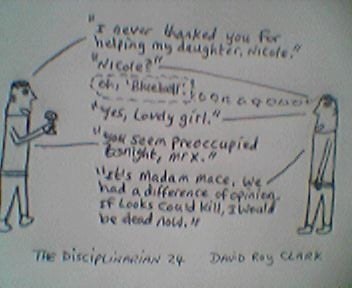 "I never thanked you for
helping my daughter, Nicole."
"Nicole?"
(oh, 'Bluebell'!)
"Yes, Lovely girl."
"You seem preoccupied
tonight, Mr X."
"It's Madam Mace. We
had a difference of opinion.
If Looks could kill, I would
be dead now."
THE DISCIPLINARIAN 24 DAVID ROY CLARK